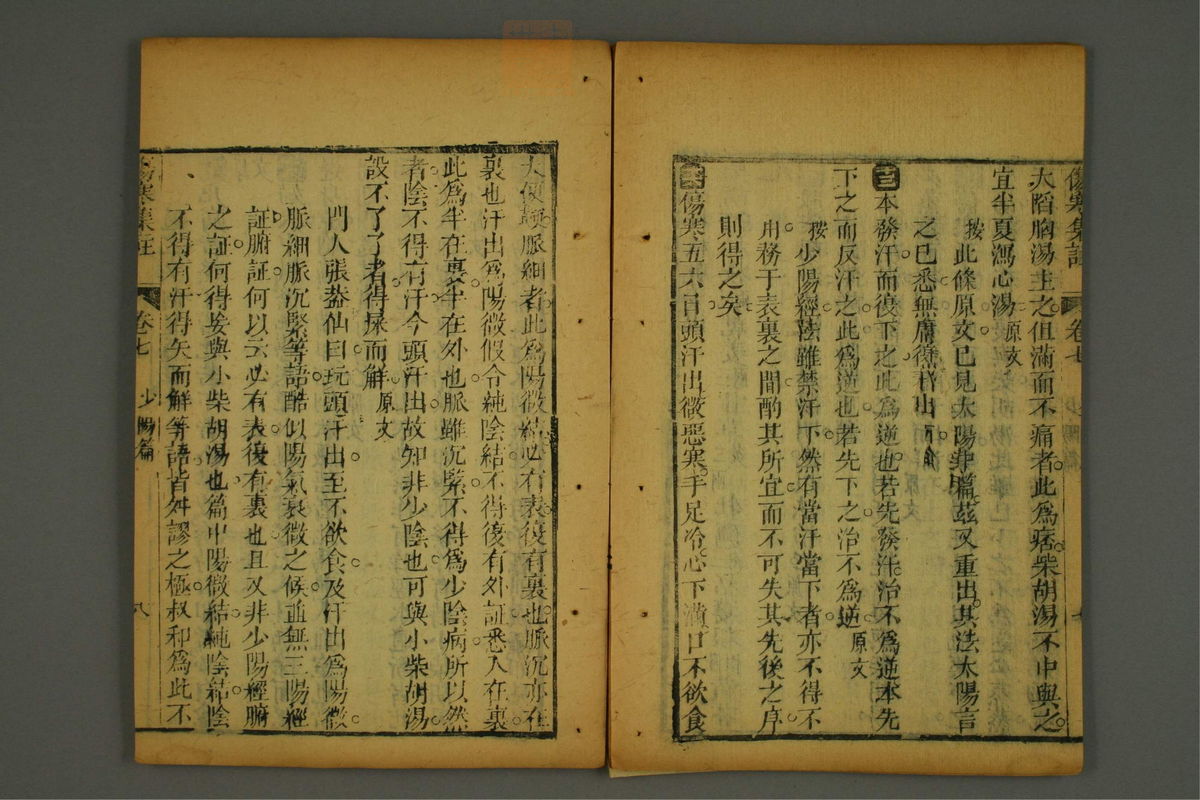 傷寒集註 卷七
大陷胸湯主之但滿而不痛者此爲痞柴胡湯不中與之
宜半夏瀉心湯原文
按此條原文已見太陽篇茲又重出其法太陽言
之已悉無庸
本發汗而復下之此爲逆也若先發汗治不爲逆本先
下之而反汗之此爲逆也若先下之治不爲逆原文
按少陽經法雖禁汗下然有當汗當下者亦不得不
用務于表裏之間酌其所宜而不可失其先後之序
則得之矣
傷寒五六日頭汗出微惡寒手足冷心下滿口不欲食
大便鞕脈細者此爲陽微結必有表復有裏也脈沉亦在
裏也汗出爲陽微假令純陰結不得復有外証悉入在裏
此爲半在裏半在外也脈雖沉緊不得爲少陰病所以然
者陰不得有汗今頭汗出故知非少陰也可與小柴胡湯
設不了了者得屎而解原文
門人張蓋仙曰玩頭汗出至不欲食及汗出爲陽微
脈細脈沉緊等語酷似陽氣衰微之候並無三陽經
証腑証何以云必有表復有裏也且又非少陽經腑
之証何得妄與小柴胡湯也篇中陽微結純陰結陰
不得有汗得矢而解等語皆舛謬之極叔和爲此不
傷寒集註 卷七 少陽篇 八